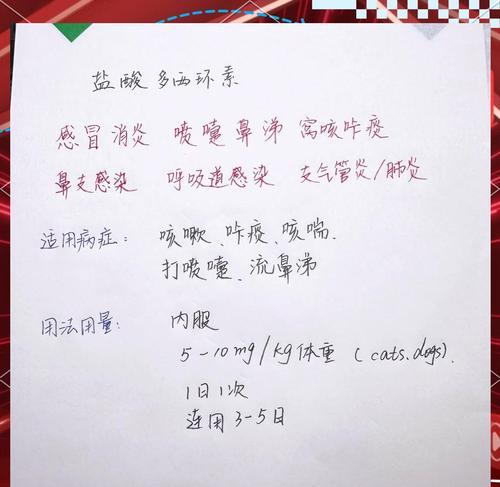 盐酸多西环素
感冒消炎 喷嚏鼻涕 窝咳咋痰
鼻支感染 呼吸道感染 支气管炎/肺炎
适用病症: 咳嗽、咋痰、咳喘、
打喷嚏、流鼻涕
用法用量: 内服
5-10mg/kg体重 (cats.dogs).
1日1次
连用3-5日